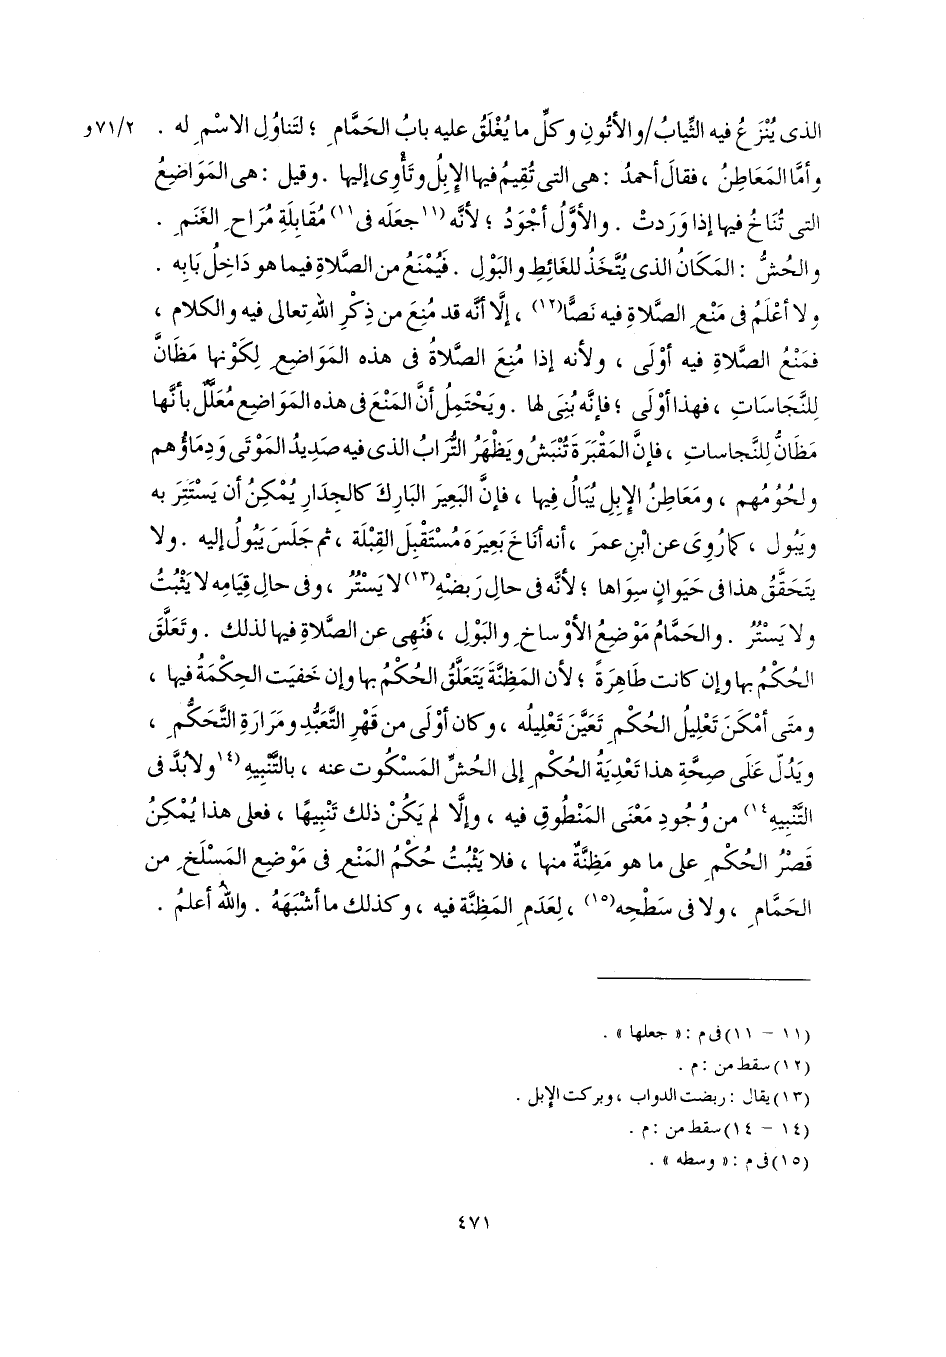 الذى يُنْزَعُ فيه الثِّيابُ/ والأتُونِ وكلِّ ما يُغْلَقُ عليه بابُ الحَمَّامِ ؛ لتَناوُلِ الاسْمِ له . ٧١/٢و
وأمَّا المَعَاطِنُ ، فقالَ أحمدُ : هى التى تُقِيمُ فيها الإِبِلُ وتَأْوِى إليها . وقيل : هى المَوَاضِعُ
التى تُنَاخُ فيها إذا وَرَدتْ . والأوَّلُ أجْوَدُ ؛ لأنَّه (١١جعَله فى١١) مُقَابِلَةِ مُرَاحِ الغَنَمِ .
والحُشُّ : المَكَانُ الذى يُتَّخَذُ للغَائِطِ والبَوْلِ . فَيُمْنَعُ من الصَّلاةِ فيما هو دَاخِلُ بَابِه .
ولا أعْلَمُ فى مَنْعِ الصَّلاةِ فيه نَصًّا(١٢) ، إلَّا أنَّه قد مُنِعَ من ذِكْرِ اللهِ تعالى فيه والكلام ،
فمَنْعُ الصَّلاةِ فيه أوْلَى ، ولأنه إذا مُنِعَ الصَّلاةُ فى هذه المَوَاضِعِ لِكَوْنها مَظَانَّ
لِلنَّجَاسَاتِ ، فهذا أوْلَى ؛ فإنَّه بُنِىَ لها . ويَحْتَمِلُ أنَّ المَنْعَ فى هذه المَوَاضِع مُعَلَّلٌ بأنَّها
مَظَانُّ لِلنَّجاساتِ ، فإنَّ المَقْبَرَةَ تُنْبَشُ ويَظْهَرُ التُّرَابُ الذى فيه صَدِيدُ المَوْتَى وَدِمَاؤُهم
ولحُومُهم ، ومَعَاطِنُ الإِبِلِ يُبَالُ فيها ، فإنَّ البَعِيرَ البَارِكَ كالجِدَارِ يُمْكِنُ أن يَسْتَتِرَ به
ويَبُول ، كما رُوِىَ عن ابْنِ عمرَ ، أنه أنَاخَ بَعِيرَه مُسْتَقْبِلَ القِبْلَة ، ثم جَلَسَ يَبُولُ إليه . ولا
يَتَحَقَّقُ هذا فى حَيَوانٍ سِوَاها ؛ لأنَّه فى حالِ رَبضْهِ(١٣) لا يَسْتُرُ ، وفى حالِ قِيَامِه لا يَثْبُتُ
ولا يَسْتُرُ . والحَمَّامُ مَوْضِعُ الأوْساخِ والبَوْلِ ، فَنُهِى عن الصَّلاةِ فيها لذلك . وتَعَلَّقَ
الحُكْمُ بها وإن كانت طَاهِرَةً ؛ لأن المَظِنَّةَ يَتَعَلَّقُ الحُكْمُ بها وإن خَفيَت الحِكْمَةُ فيها ،
ومتَى أمْكَنَ تَعْلِيلُ الحُكْمِ تَعَيَّنَ تَعْلِيلُه ، وكان أوْلَى من قَهْرِ التَّعَبُّدِ ومَرَارَةِ التَّحَكُّمِ ،
ويَدُلّ عَلَى صِحَّةِ هذا تَعْدِيَةُ الحُكْمِ إلى الحُشِّ المَسْكُوت عنه ، بالتَّنْبِيهِ (١٤ولابُدَّ فى
التَّنْبِيهِ١٤) من وُجُودِ مَعْنَى المَنْطُوقِ فيه ، وإلَّا لم يَكُنْ ذلك تَنْبِيهًا ، فعلى هذا يُمْكِنُ
قَصْرُ الحُكْمِ على ما هو مَظِنَّةٌ منها ، فلا يَثْبُتُ حُكْمُ المَنْعِ فى مَوْضِع المَسْلَخِ من
الحَمَّامِ ، ولا فى سَطْحِه(١٥) ، لِعَدَمِ المَظِنَّة فيه ، وكذلك ما أشْبَهَهُ . واللهُ أعلمُ .
(١١ – ١١) فى م : « جعلها » .
(١٢) سقط من : م .
(١٣) يقال : ربضت الدواب ، وبركت الإبل .
(١٤ – ١٤) سقط من : م .
(١٥) فى م : « وسطه » .
٤٧١